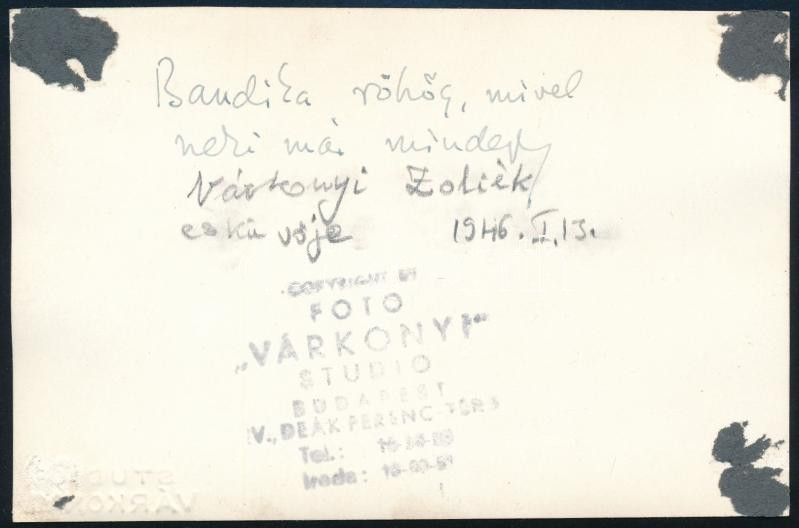 Bandika röhög, mivel
neki már mindegy
Várkonyi Zoliék
esküvője 1946. I. 13.
COPYRIGHT BY
FOTO
„VÁRKONYI"
STUDIO
BUDAPEST
IV., DEÁK FERENC-TÉR
Tel.:
Iroda:
STUDIO
VÁRKONYI